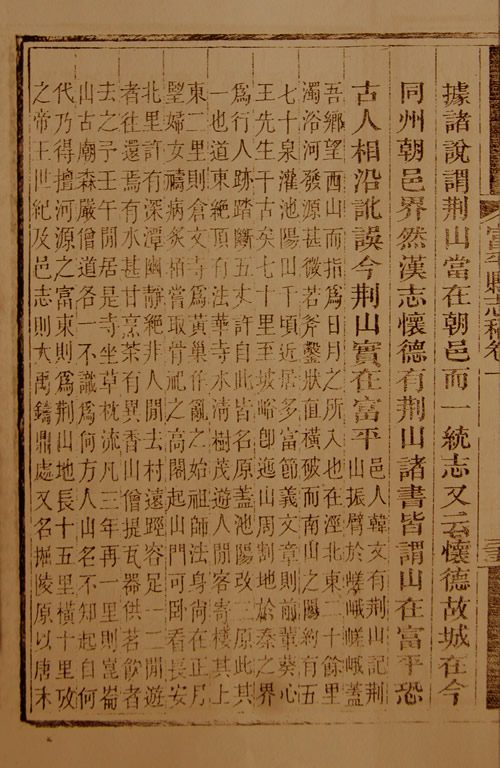 富平縣志稿卷一
三
據諸說謂荆山當在朝邑而一統志又云懷德故城在今
同州朝邑界然漢志懷德有荆山諸書皆謂山在富平恐
古人相沿訛誤今荆山實在富平
邑人韓文有荆山記荆
山振臂於嵯峨嵯峨蓋
吾鄉望西山而指爲日月之所入也在涇北東二十餘里
濁浴河發源甚微若斧鑿狀值橫破而南山之陽約有五
七十泉灌池陽田千頃近居多富節義文章則前輩葵心
王先生干古矣七十里至坡峪卽迤山周割地於秦之界
爲行人跡踏斷五丈許自此皆名原蓋池陽改二原此其
一也道東絶頂有法華寺水清樹茂遊人閒客寄棲其上
東二里則倉文寺爲黃巢作亂之始祖師法身尙在正乃
望婦女禱病炙栢嘗取骨祀之高閣起山門可卧看長安
北里許有深潭幽靜絶非人閒去村遠蹊容足一二閒遊
者往還焉有水甚甘烹茶有異香山僧提瓦器供若飮者
去之予壬午閒居是寺坐草枕流凡三年再一里則崑崙
山古廟森嚴僧道各一不識爲何方人山名不知起自何
代乃得擅河源之富東則爲荆山地長十五里橫十里攷
之帝王世紀及邑志則大禹鑄鼎處又名掘陵原以唐末